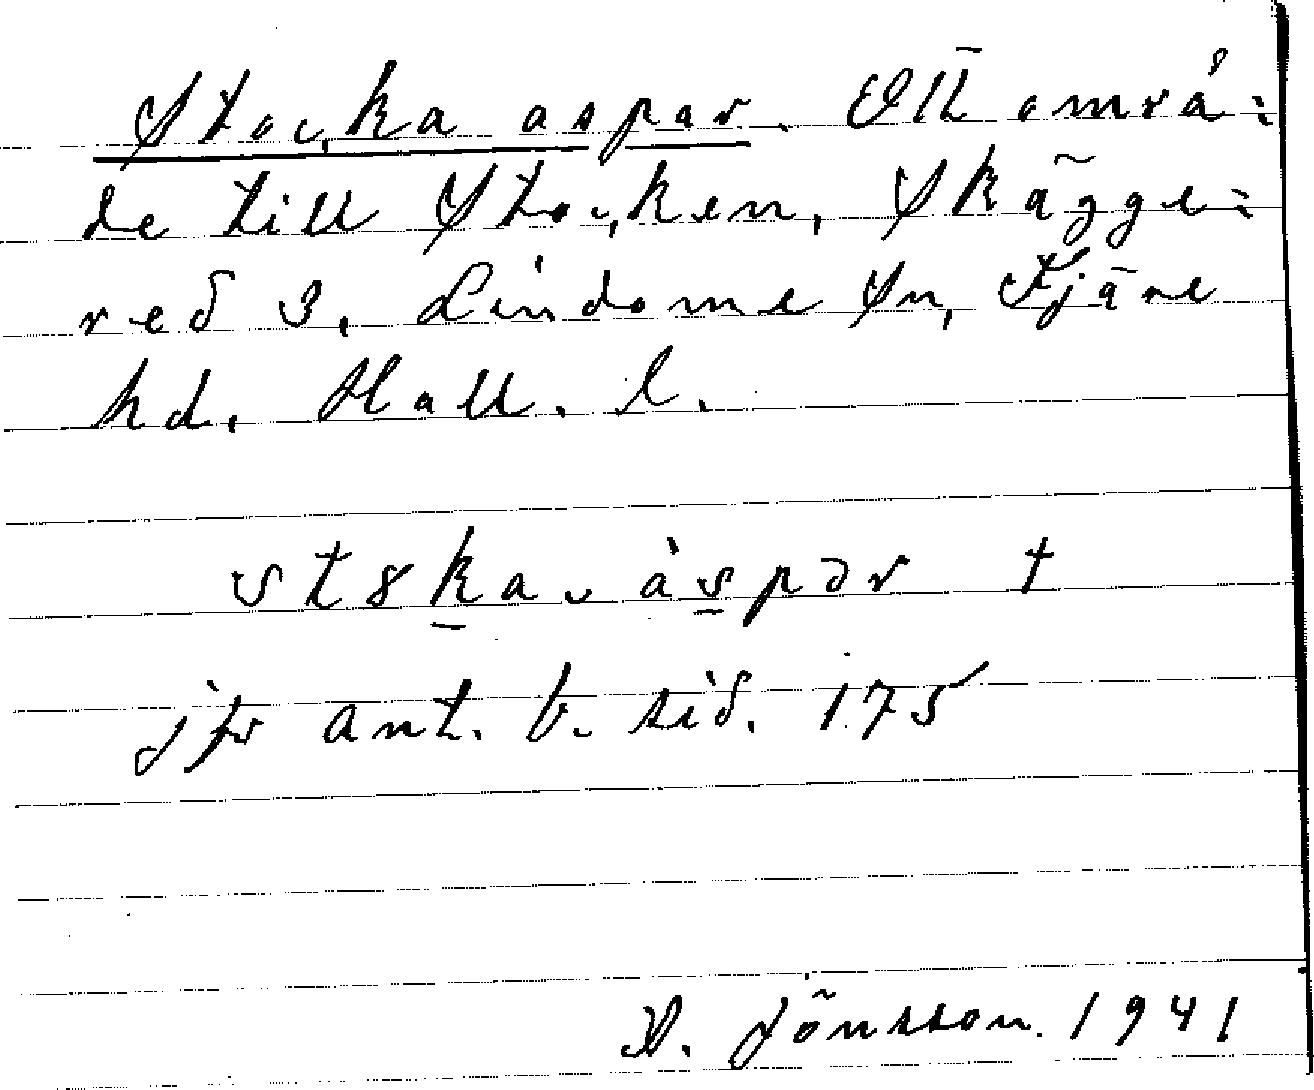 Stocka aspar. Ett områ=
de till Stocken, Skägge=
red 3, Lindome sn, Fjäre
hd. Hall. l.
st8ka ˬ àspər †
jfr ant. b. sid. 175
D. Jönsson. 1941